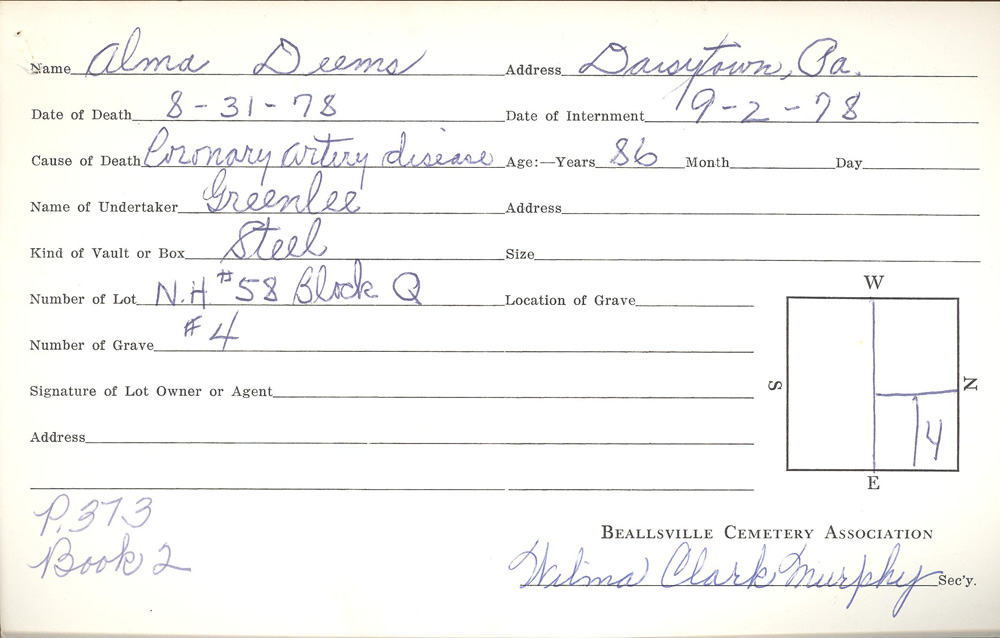 Name Alma Deems Address Daisytown, Pa.
Date of Death 8-31-78 Date of Internment 9-2-78
Cause of Death Coronary artery disease Age:—Years 86 Month Day
Name of Undertaker Greenlee Address
Kind of Vault or Box Steel Size
Number of Lot N.H. #58 Block Q Location of Grave
Number of Grave #4
Signature of Lot Owner or Agent
Address
W
S N
4
E
P. 373
Book 2
BEALLSVILLE CEMETERY ASSOCIATION
Wilma Clark Murphy Sec'y.